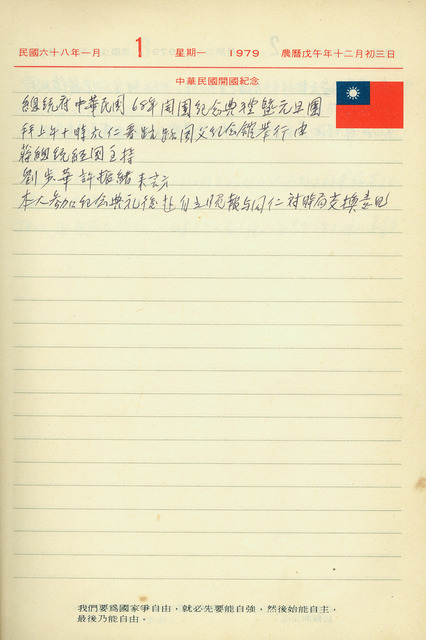 民國六十八年一月 1 星期一 1979 農曆戊午年十二月初三日
中華民國開國紀念
總統府中華民國68年開國紀念典禮暨元旦團
拜上午十時在仁愛路國父紀念館舉行由
蔣總統經國主持
劉步華許振緒來訪
本人參加紀念典禮後赴自立晚報與同仁對時局交換意見
我們要爲國家爭自由,就必先要能自強,然後始能自主,
最後乃能自由。